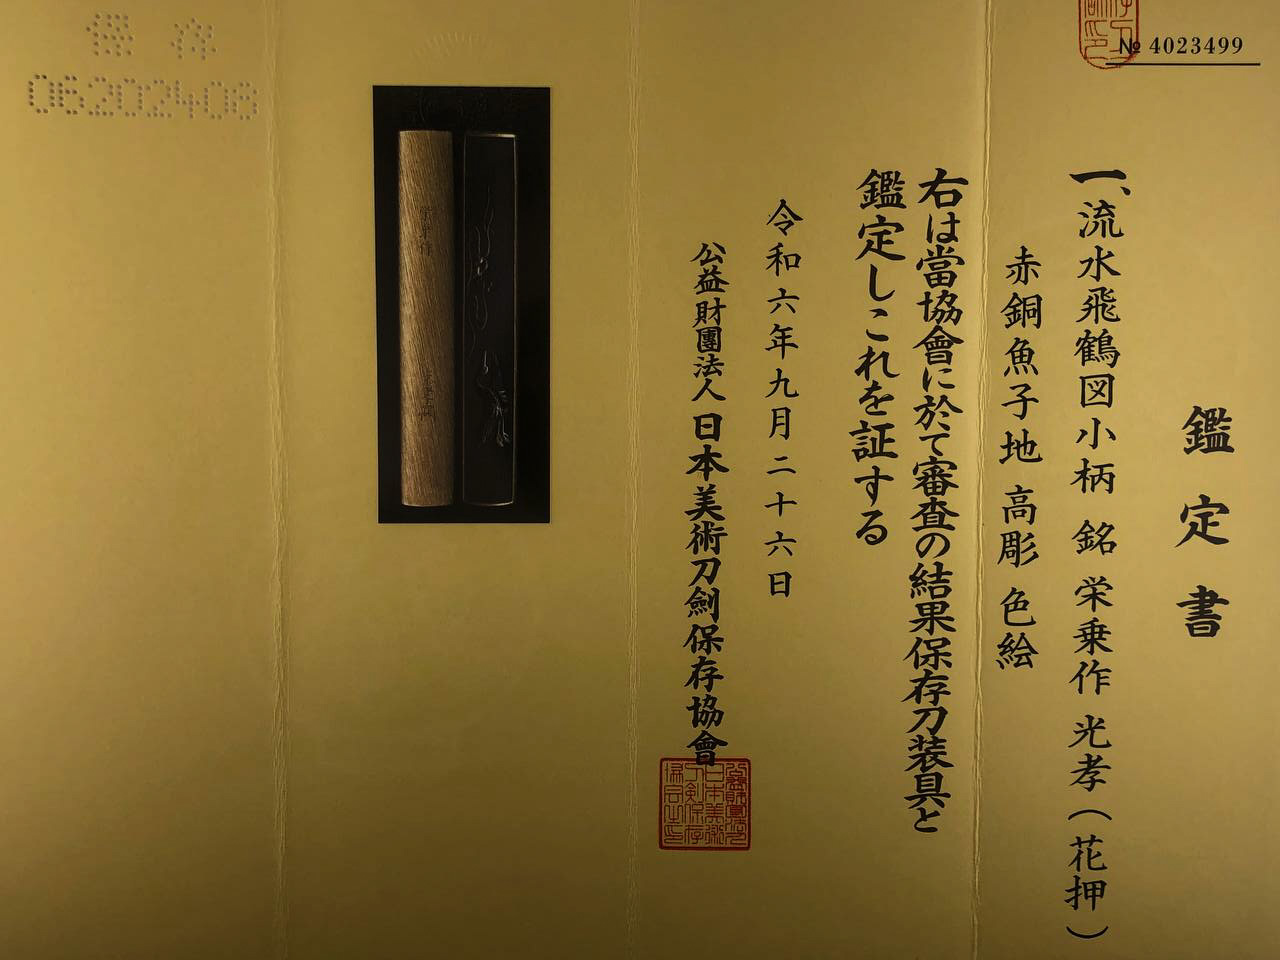 № 4023499
鑑定書
一、流水飛鶴図小柄 銘 栄乗作 光孝(花押)
赤銅魚子地 高彫 色絵
右は當協會に於て審査の結果保存刀装具と
鑑定しこれを証する
令和六年九月二十六日
公益財團法人 日本美術刀劍保存協會
保存
06202408